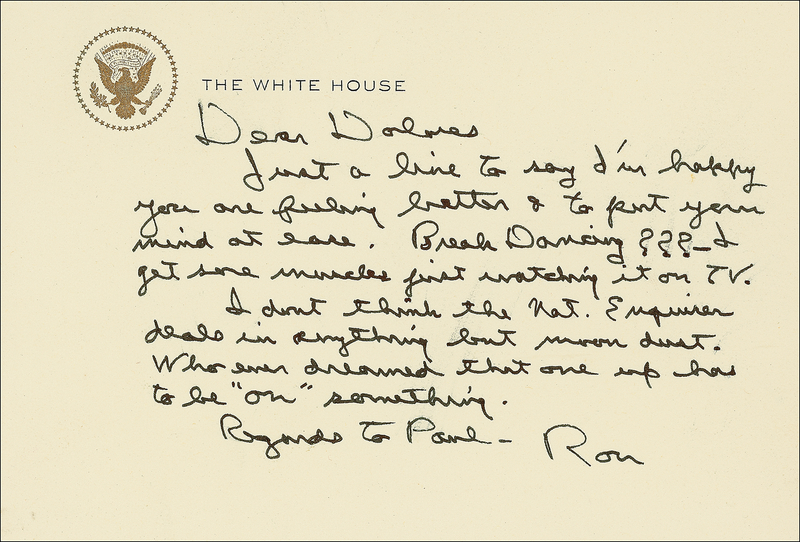 THE WHITE HOUSE
Dear Dolores
Just a line to say I'm happy
you are feeling better & to put your
mind at ease. Break Dancing ???—I
get sore muscles just watching it on TV.
I dont think the Nat. Enquirer
deals in anything but moon dust.
Who ever dreamed that one up has
to be "on" something.
Regards to Paul – Ron